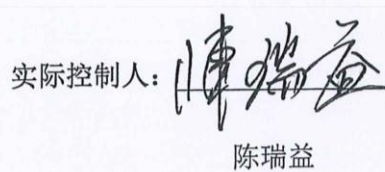 实际控制人：陈瑞益
陈瑞益